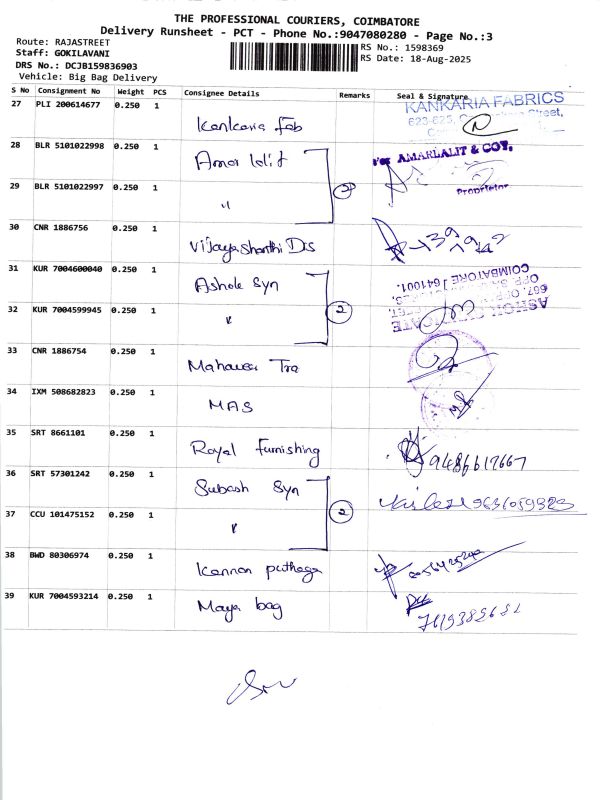 THE PROFESSIONAL COURIERS, COIMBATORE
Delivery Runsheet - PCT - Phone No.:9047080280 - Page No.:3
Route: RAJASTREET
Staff: GOKILAVANI
DRS No.: DCJB159836903
Vehicle: Big Bag Delivery
RS No.: 1598369
RS Date: 18-Aug-2025
S No Consignment No Weight PCS Consignee Details Remarks Seal & Signature
27 PLI 200614677 0.250 1 Kankaria Fab KANKARIA FABRICS
28 BLR 5101022998 0.250 1 Amar lalit For AMARLALIT & COY.
29 BLR 5101022997 0.250 1 " 2 Proprietor
30 CNR 1886756 0.250 1 Vijayashanthi Dis
31 KUR 7004600040 0.250 1 Ashok Syn COIMBATORE 641001.
32 KUR 7004599945 0.250 1 " 2
33 CNR 1886754 0.250 1 Mahaveer Tra
34 IXM 508682823 0.250 1 MAS
35 SRT 8661101 0.250 1 Royal Furnishing 9486617667
36 SRT 57301242 0.250 1 Subash Syn
37 CCU 101475152 0.250 1 " 2
38 BWD 80306974 0.250 1 Kannan puthaga
39 KUR 7004593214 0.250 1 Maya bag